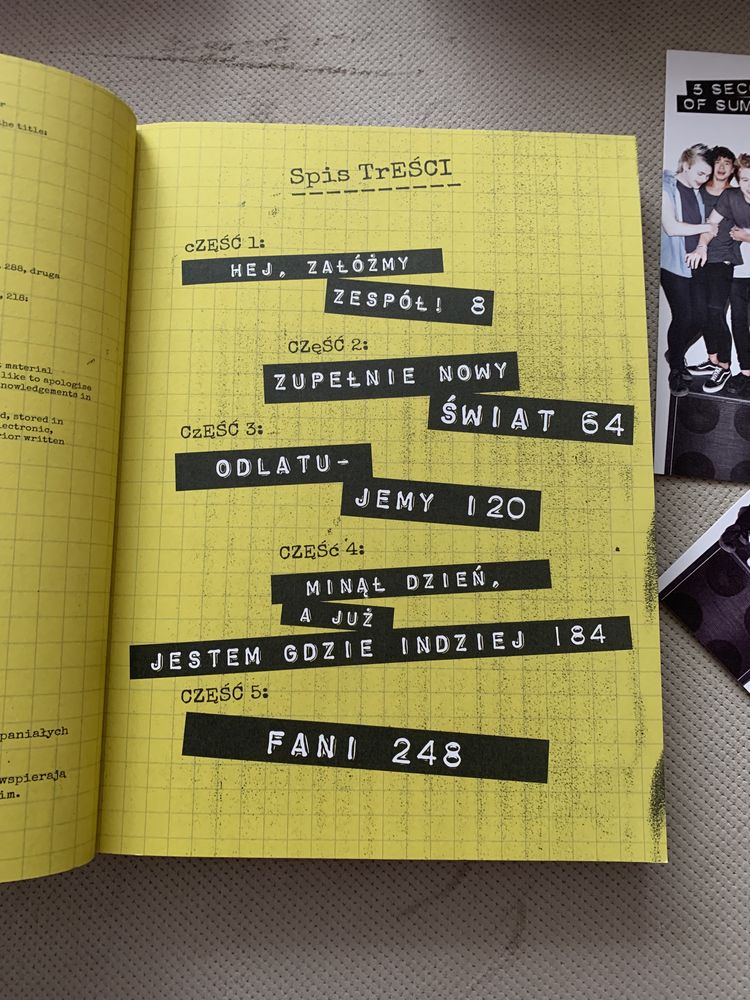 the title:
288, druga
218:
material
like to apologise
nowledgements in
d, stored in
lectronic,
rior written
paniałych
wspierają
im.
Spis TrEŚCI
cZĘŚĆ 1:
HEJ, ZAŁÓŻMY
ZESPÓŁ! 8
CZęŚĆ 2:
ZUPEŁNIE NOWY
ŚWIAT 64
CzĘŚĆ 3:
ODLATU-
JEMY 120
CZĘŚć 4:
MINĄŁ DZIEŃ,
A JUŻ
JESTEM GDZIE INDZIEJ 184
CZĘŚĆ 5:
FANI 248
5 SEC
OF SUM